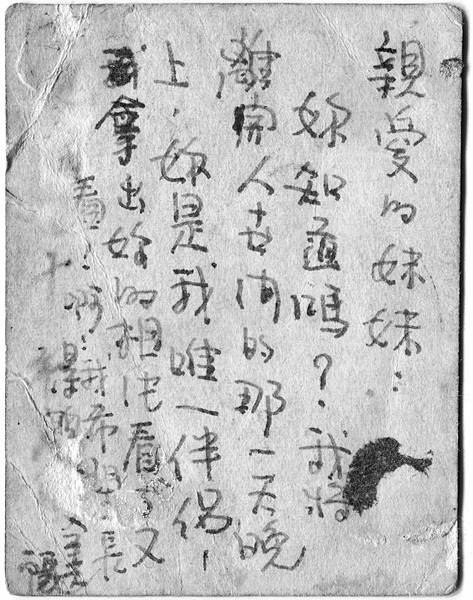 親愛的妹妹：
妳知道嗎？我將
離開人世間的那一天晚
上，妳是我唯一伴偶，
我拿出妳的相片看了又
看…啊…我希望